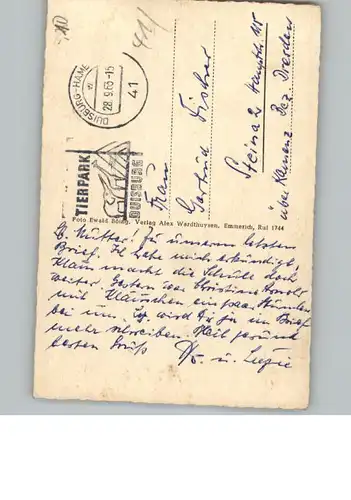 DUISBURG-HAMB
28.9.63-15
41
TIERPARK
DUISBURG
Frau
Gertrud Fischer
Steina 2 Hauptstr. 115
über Kamenz Bez. Dresden
Foto Ewald Verlag Alex Werdthuysen, Emmerich, Ruf 1744
L. Mutter! Zu unserem letzten
Brief. Ich habe mich erkundigt,
Klaus macht die Schule doch
weiter. Gestern war Christian Arnold
mit Kläuschen ein paar Stunden
bei uns. wird Dir ja im Brief
mehr schreiben. Viel gesund
besten Gruß
u. Luzie